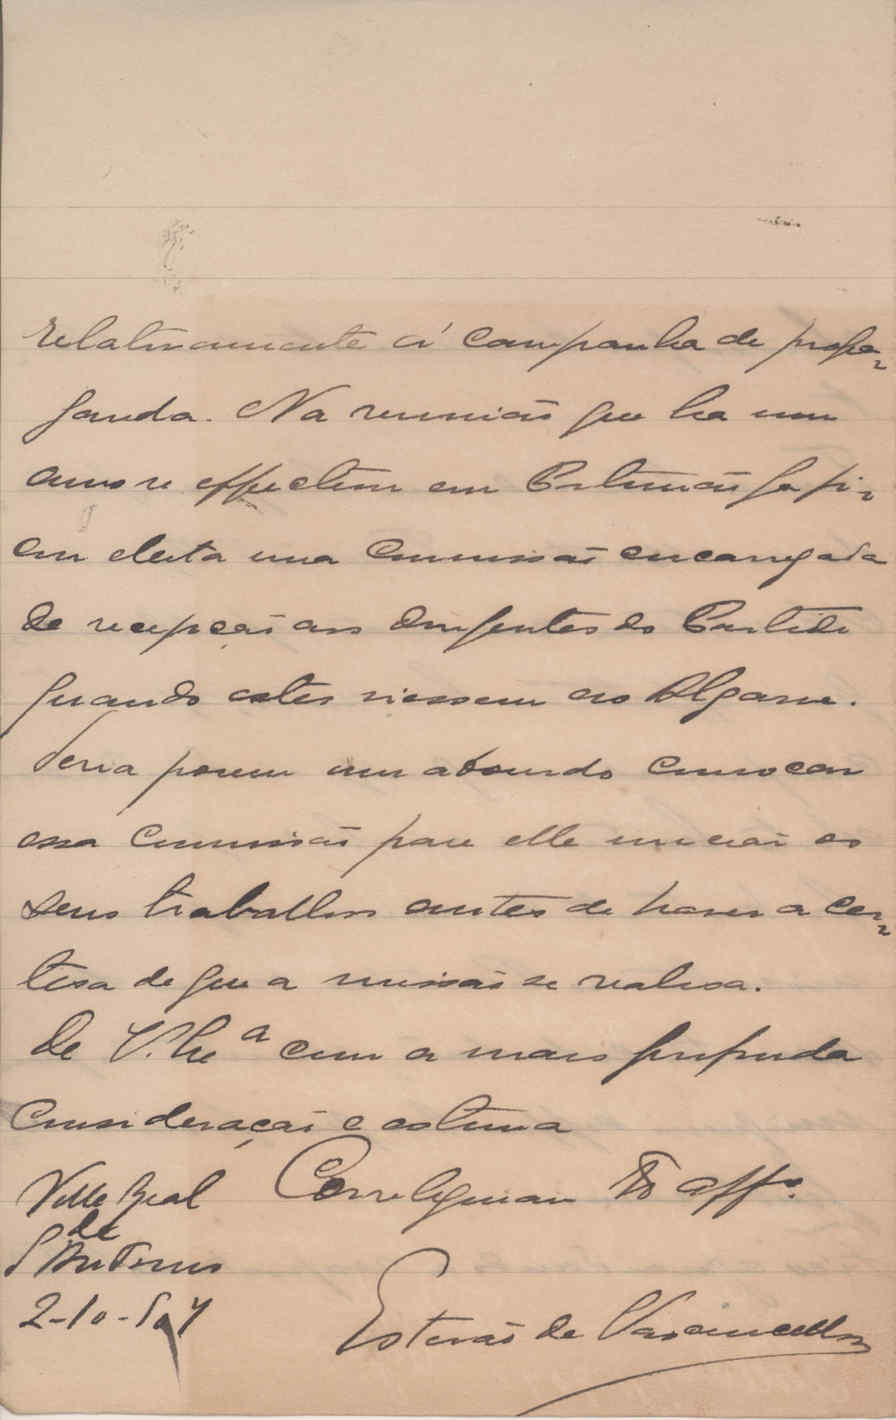 relativamente á campanha de propa-
ganda. Na reunião que ha um
anno se effectuou em Portimão fo-
eleita uma commissão encarregada
de recepção aos dirigentes do Partido
quando estes viessem ao Algarve.
Seria porem um absurdo convocar
essa commissão para ella iniciar os
seus trabalhos antes de haver a cer-
tesa de que a missão se realisa.
De V. Ex.ª com a mais profunda
Consideração e estima
Correligionario aff.º
Villa Real
de
S. Antonio
2-10-
Estevão de Vasconcellos